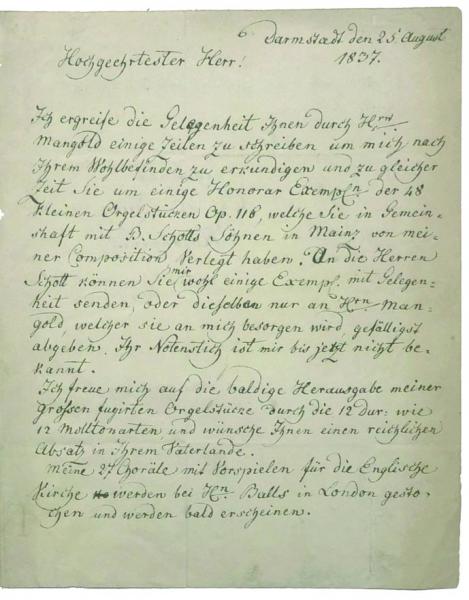 6. Darmstadt den 25 August
1837.
Hochgeehrtester Herr!
Ich ergreife die Gelegenheit Ihnen durch Hrn
Mangold einige Zeilen zu schreiben um mich nach
Ihrem Wohlbefinden zu erkundigen und zu gleicher
Zeit Sie um einige Honorar Exempln der 48
kleinen Orgelstücken Op. 116, welche Sie in Gemein=
shaft mit B. Schotts Söhnen in Mainz von mei=
ner Composition verlegt haben. An die Herren
Schott können Sie mir wohl einige Exempl. mit Gelegen=
heit senden, oder dieselben nur an Hrn Man=
gold, welcher sie an mich besorgen wird, gefälligst
abgeben. Ihr Notenstich ist mir bis jetzt nicht be=
kannt.
Ich freue mich auf die baldige Herausgabe meiner
grossen fugirten Orgelstücke durch die 12 Dur= wie
12 Molltonarten und wünsche Ihnen einen reichlichen
Absatz in Ihrem Vaterlande.
Meine 27 Choräle mit Vorspielen für die Englische
Kirche werden bei Hn Balls in London gesto=
chen und werden bald erscheinen.